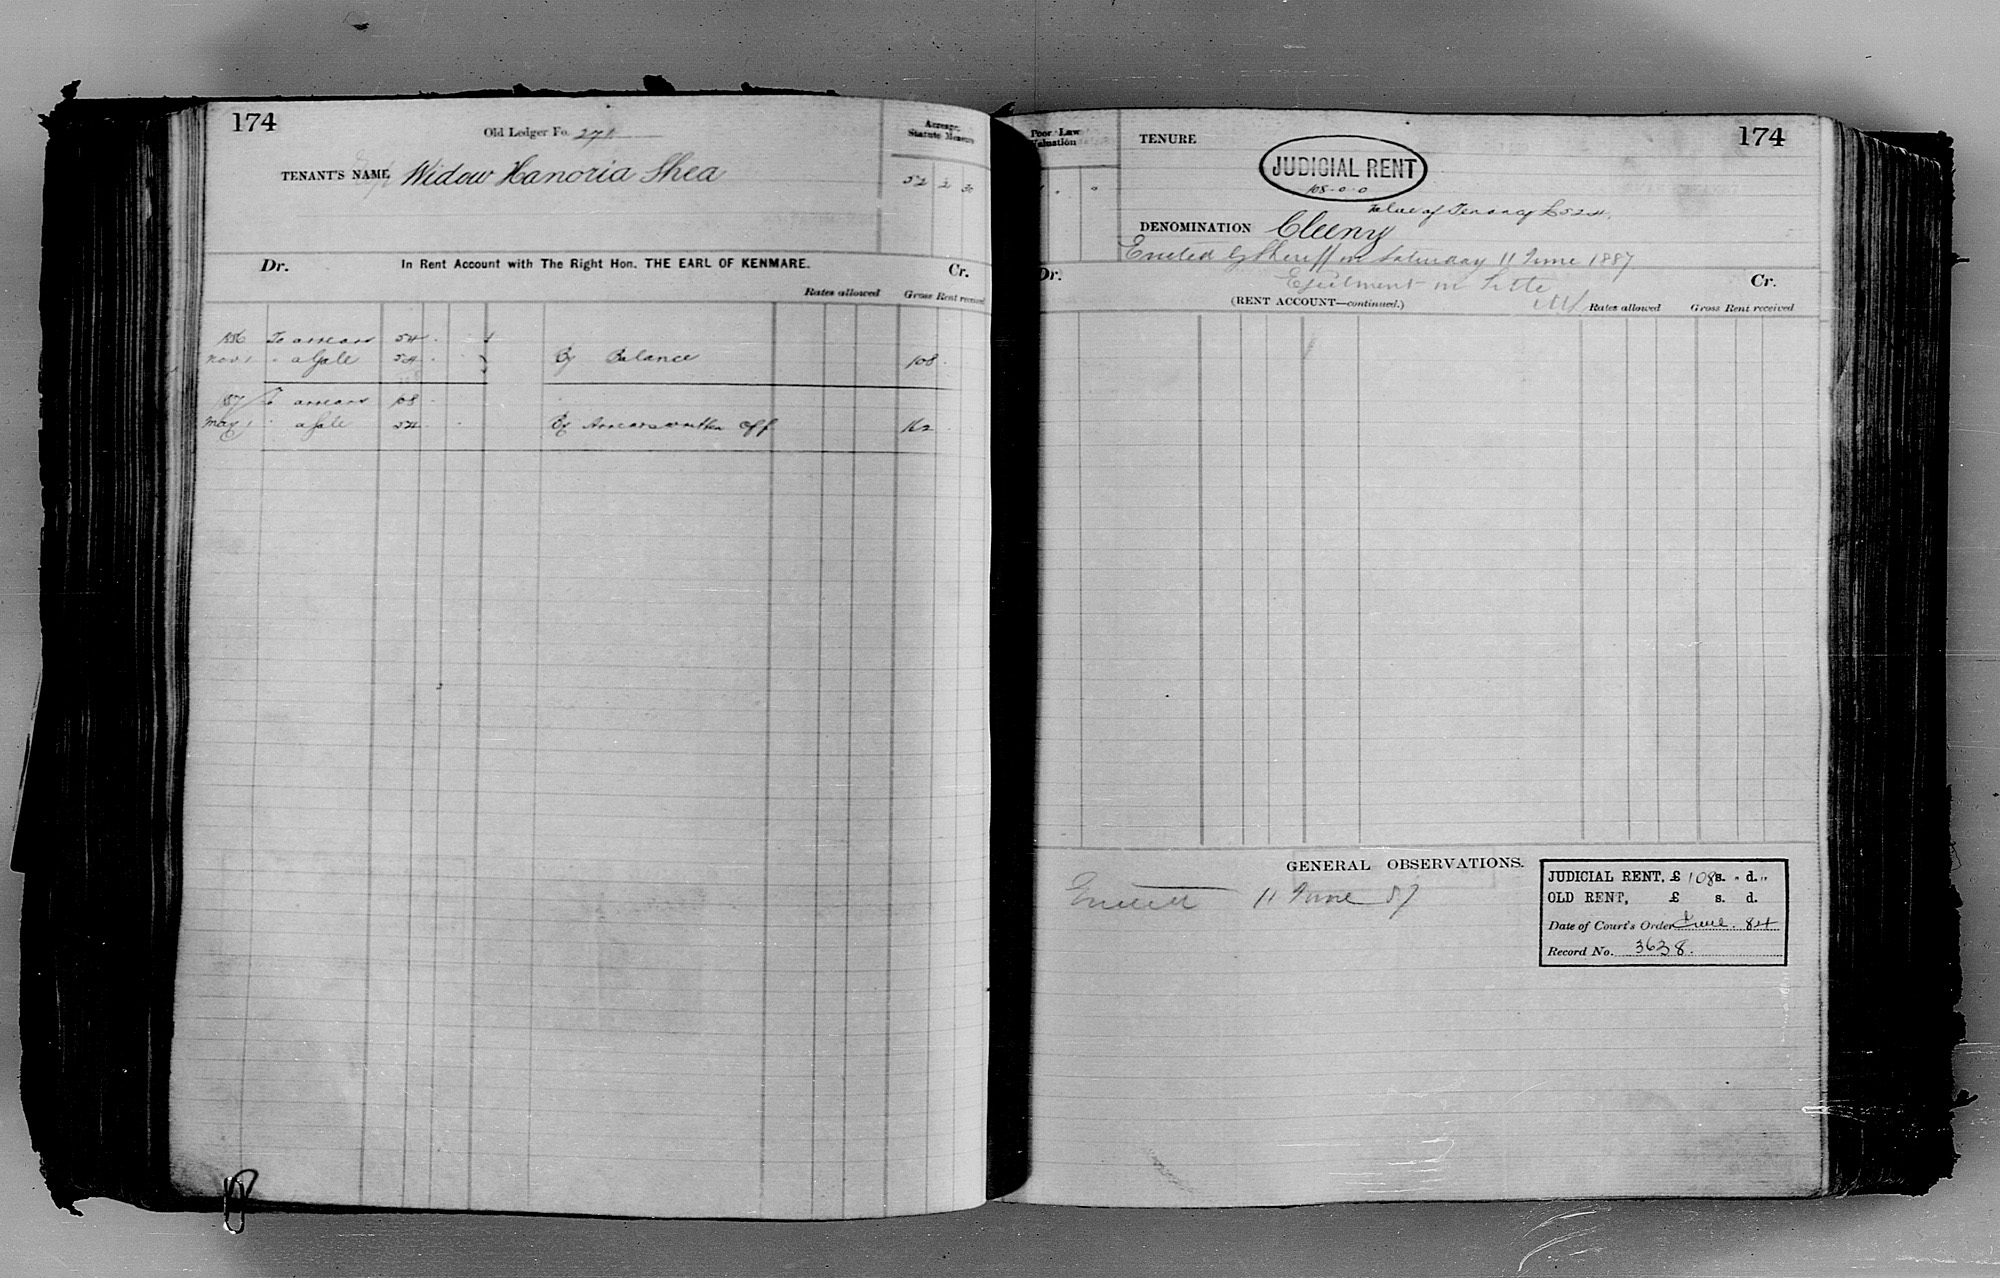 174
Old Ledger Fo. 271
Acreage.
Statute Measure
TENANT'S NAME Widow Hanoria Shea
52 2 30
Dr. In Rent Account with The Right Hon. THE EARL OF KENMARE. Cr.
Rates allowed Gross Rent received
1886 To arrears 54 . .
Nov 1 " a Gale 54 . . By Balance 108 .
1887 To arrears 108 .
May 1 " a Gale 54 . . By Arrears written off 162 .
Poor Law
Valuation
TENURE
174
JUDICIAL RENT
108-0-0
Value of Tenancy £524.
DENOMINATION Cleeny
Evicted by Sheriff on Saturday 11 June 1887
Ejectment on Title
Dr. (RENT ACCOUNT—continued.) Cr.
Rates allowed Gross Rent received
GENERAL OBSERVATIONS.
Evicted 11 June 87
JUDICIAL RENT, £ 108 s. " d. "
OLD RENT, £ s. d.
Date of Court's Order June 84
Record No. 3638.